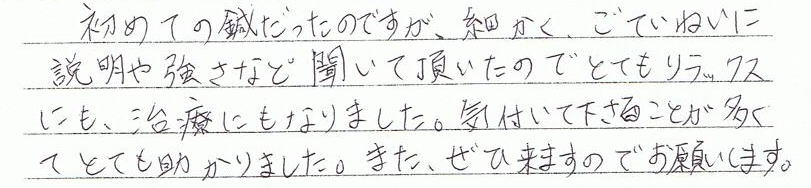 初めての鍼だったのですが、細かく、ごていねいに
説明や強さなど聞いて頂いたのでとてもリラックス
にも、治療にもなりました。気付いて下さることが多く
てとても助かりました。また、ぜひ来ますのでお願いします。